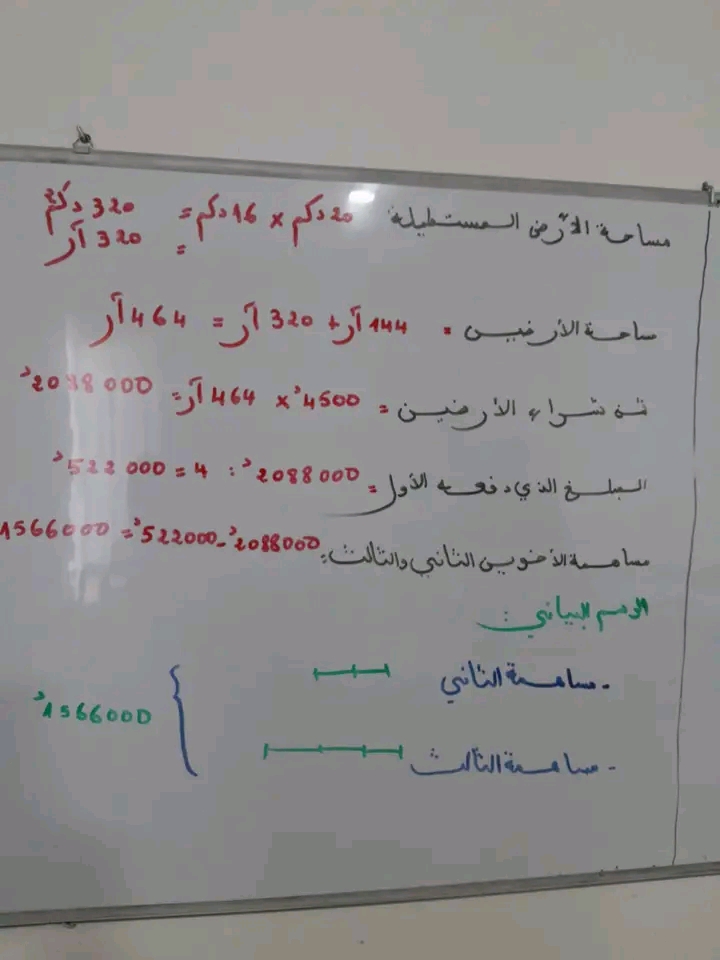 مساحة الأرض المستطيلة 20 دكم x 16 دكم = 320 دكم²
= 320 آر
مساحة الأرضين = 144 آر + 320 آر = 464 آر
ثمن شراء الأرضين = 4500د x 464 آر = 2088000د
المبلغ الذي دفعه الأول = 2088000د : 4 = 522000د
مساهمة الأخوين الثاني والثالث = 2088000د - 522000د = 1566000
الرسم البياني :
- مساهمة الثاني
1566000د
- مساهمة الثالث